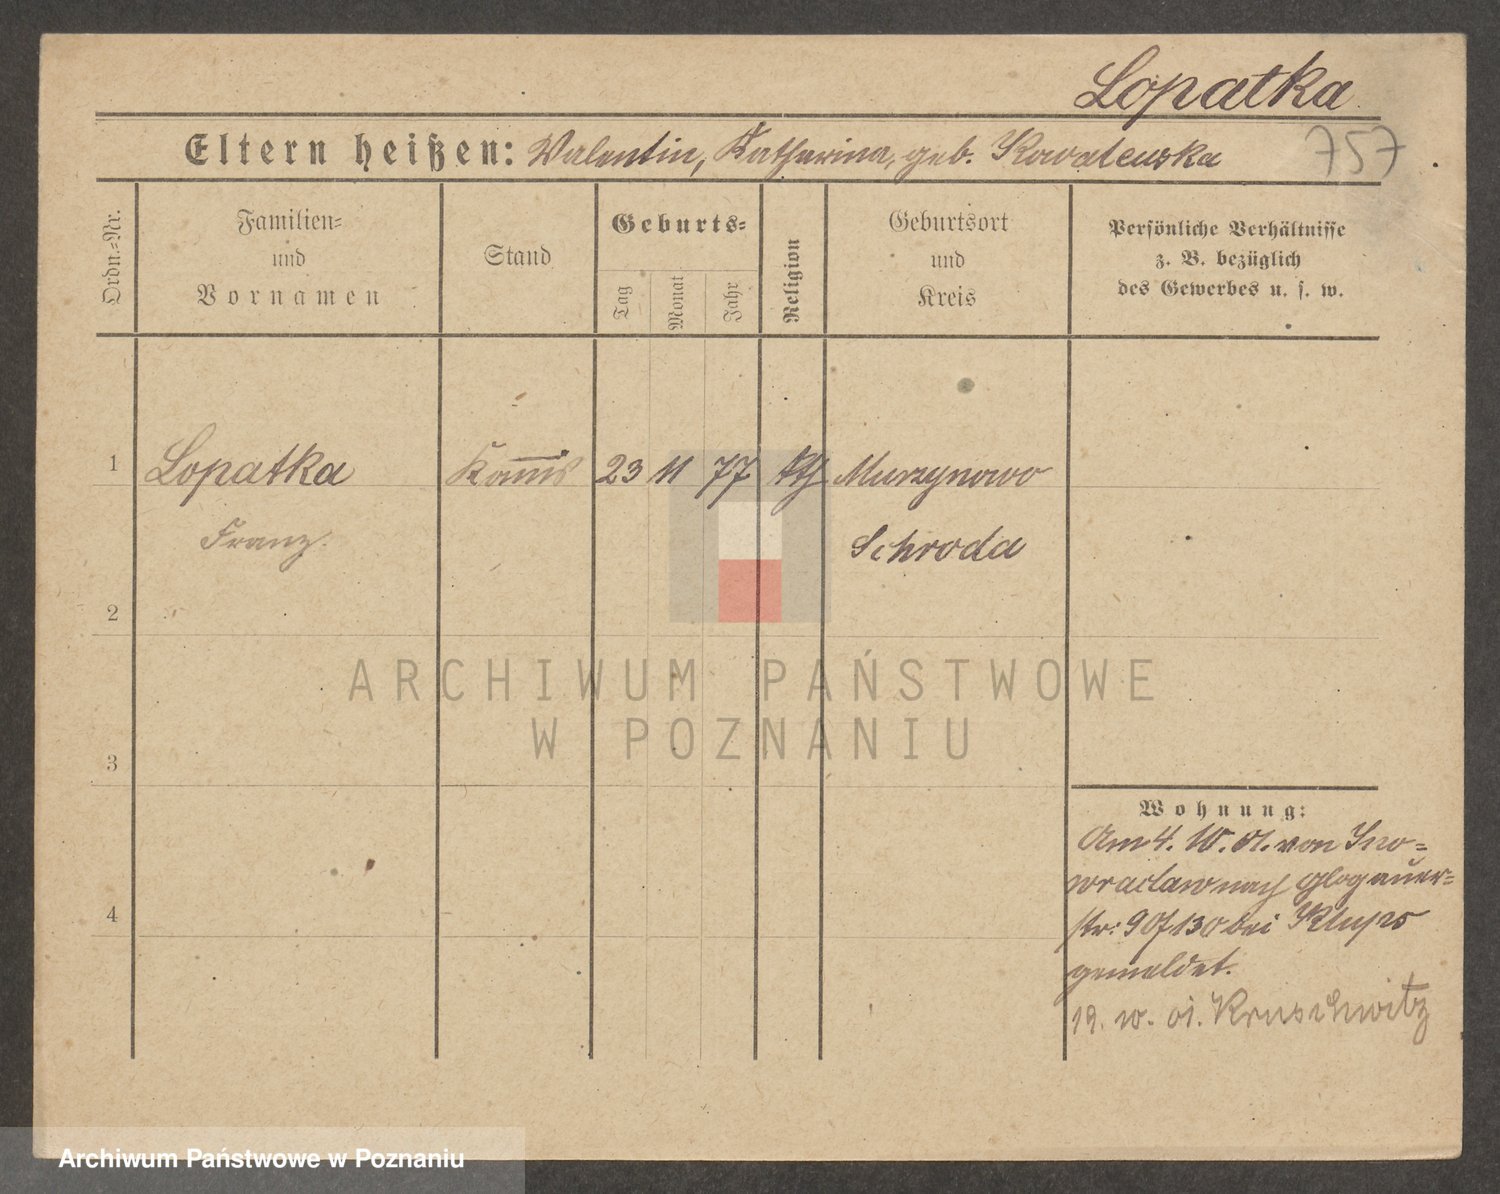 Lopatka
Eltern heißen: Valentin, Katharina, geb. Kowalewska
757
Ordn.=Nr.
Familien=
und
Vornamen
Stand
Geburts=
Tag
Monat
Jahr
Religion
Geburtsort
und
Kreis
Persönliche Verhältnisse
z. B. bezüglich
des Gewerbes u. s. w.
1
Lopatka
23 11 77 kth
Murzynowo
Franz.
Schroda
2
ARCHIWUM PAŃSTWOWE
W POZNANIU
3
Wohnung:
Am 4. 10. 01. von Ino=
wraclaw nach Glogauer=
str: 90 bei
gemeldet.
19. 10. 01. Kruschwitz
4
Archiwum Państwowe w Poznaniu